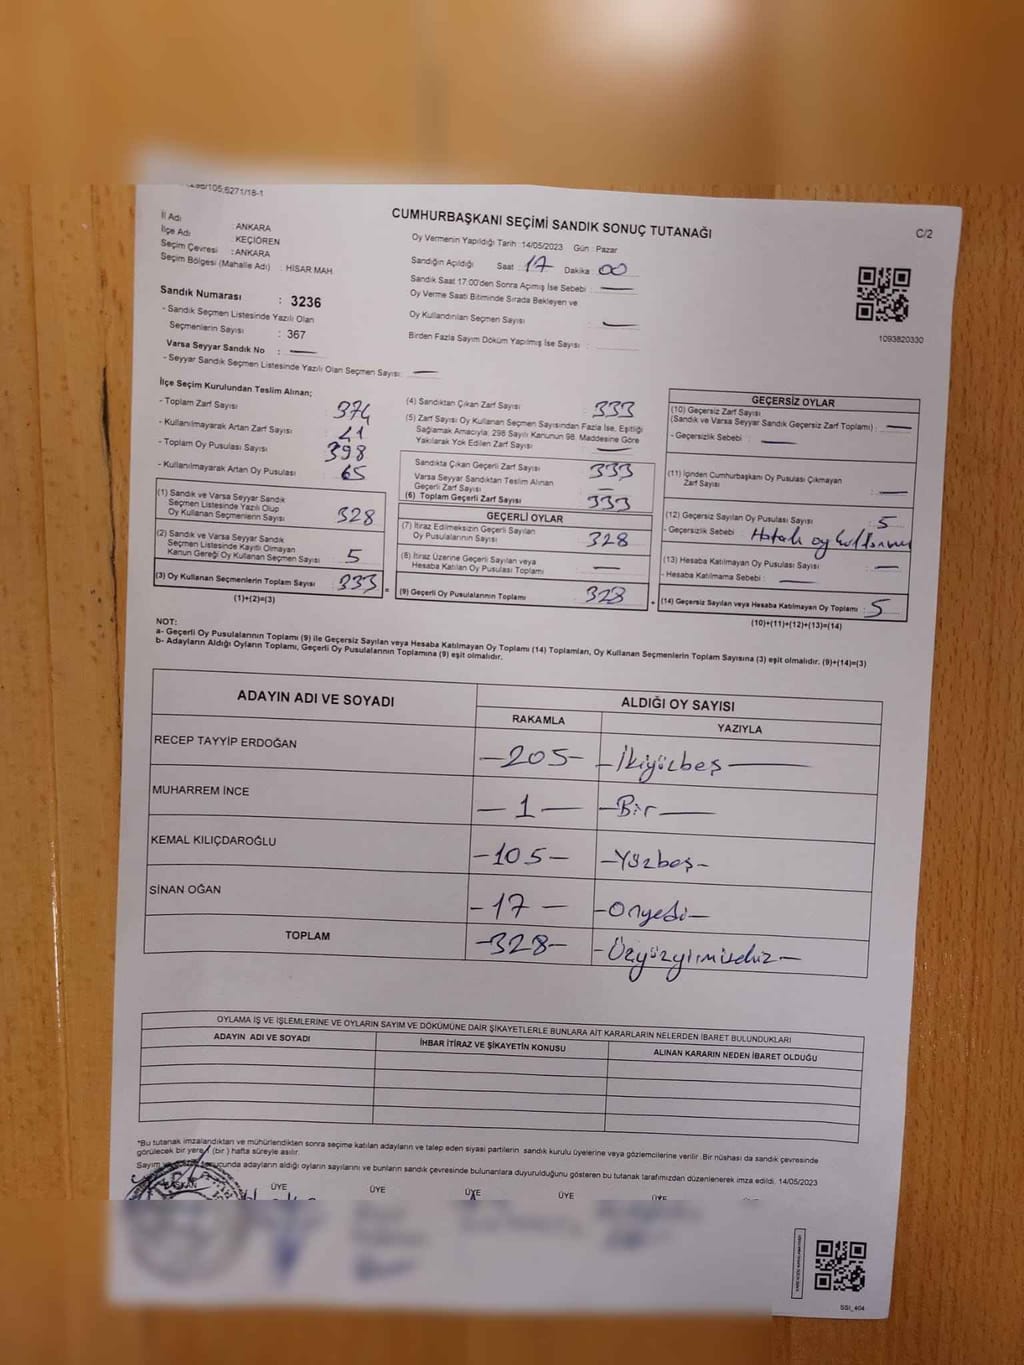 CUMHURBAŞKANI SEÇİMİ SANDIK SONUÇ TUTANAĞI
C/2
İl Adı : ANKARA
İlçe Adı : KEÇİÖREN
Seçim Çevresi : ANKARA
Seçim Bölgesi (Mahalle Adı) : HİSAR MAH.
Oy Vermenin Yapıldığı Tarih :14/05/2023 Gün : Pazar
Sandığın Açıldığı Saat : 17 Dakika : 00
Sandık Saat 17:00'den Sonra Açımış İse Sebebi :
Oy Verme Saati Bitiminde Sırada Bekleyen ve
Oy Kullandırılan Seçmen Sayısı :
Birden Fazla Sayım Döküm Yapılmış İse Sayısı :
1093820330
Sandık Numarası : 3236
- Sandık Seçmen Listesinde Yazılı Olan
Seçmenlerin Sayısı : 367
Varsa Seyyar Sandık No :
- Seyyar Sandık Seçmen Listesinde Yazılı Olan Seçmen Sayısı:
İlçe Seçim Kurulundan Teslim Alınan;
- Toplam Zarf Sayısı : 374
- Kullanılmayarak Artan Zarf Sayısı : 41
- Toplam Oy Pusulası Sayısı : 398
- Kullanılmayarak Artan Oy Pusulası : 65
(1) Sandık ve Varsa Seyyar Sandık
Seçmen Listesinde Yazılı Olup
Oy Kullanan Seçmenlerin Sayısı : 328
(2) Sandık ve Varsa Seyyar Sandık
Seçmen Listesinde Kayıtlı Olmayan
Kanun Gereği Oy Kullanan Seçmen Sayısı : 5
(3) Oy Kullanan Seçmenlerin Toplam Sayısı : 333
(1)+(2)=(3)
(4) Sandıktan Çıkan Zarf Sayısı : 333
(5) Zarf Sayısı Oy Kullanan Seçmen Sayısından Fazla İse, Eşitliği
Sağlamak Amacıyla, 298 Sayılı Kanunun 98. Maddesine Göre
Yakılarak Yok Edilen Zarf Sayısı :
Sandıkta Çıkan Geçerli Zarf Sayısı : 333
Varsa Seyyar Sandıktan Teslim Alınan
Geçerli Zarf Sayısı :
(6) Toplam Geçerli Zarf Sayısı : 333
GEÇERLİ OYLAR
(7) İtiraz Edilmeksizin Geçerli Sayılan
Oy Pusulalarının Sayısı : 328
(8) İtiraz Üzerine Geçerli Sayılan veya
Hesaba Katılan Oy Pusulası Toplamı :
(9) Geçerli Oy Pusulalarının Toplamı : 328
GEÇERSİZ OYLAR
(10) Geçersiz Zarf Sayısı
(Sandık ve Varsa Seyyar Sandık Geçersiz Zarf Toplamı) :
- Geçersizlik Sebebi :
(11) İçinden Cumhurbaşkanı Oy Pusulası Çıkmayan
Zarf Sayısı :
(12) Geçersiz Sayılan Oy Pusulası Sayısı : 5
- Geçersizlik Sebebi : Hatalı oy kullanımı
(13) Hesaba Katılmayan Oy Pusulası Sayısı :
- Hesaba Katılmama Sebebi :
(14) Geçersiz Sayılan veya Hesaba Katılmayan Oy Toplamı : 5
(10)+(11)+(12)+(13)=(14)
NOT:
a- Geçerli Oy Pusulalarının Toplamı (9) ile Geçersiz Sayılan veya Hesaba Katılmayan Oy Toplamı (14) Toplamları, Oy Kullanan Seçmenlerin Toplam Sayısına (3) eşit olmalıdır. (9)+(14)=(3)
b- Adayların Aldığı Oyların Toplamı, Geçerli Oy Pusulalarının Toplamına (9) eşit olmalıdır.
ADAYIN ADI VE SOYADI
ALDIĞI OY SAYISI
RAKAMLA YAZIYLA
RECEP TAYYİP ERDOĞAN -205- -İkiyüzbeş-
MUHARREM İNCE -1- -Bir-
KEMAL KILIÇDAROĞLU -105- -Yüzbeş-
SİNAN OĞAN -17- -Onyedi-
TOPLAM -328- -Üçyüzyirmisekiz-
OYLAMA İŞ VE İŞLEMLERİNE VE OYLARIN SAYIM VE DÖKÜMÜNE DAİR ŞİKAYETLERLE BUNLARA AİT KARARLARIN NELERDEN İBARET BULUNDUKLARI
ADAYIN ADI VE SOYADI İHBAR İTİRAZ VE ŞİKAYETİN KONUSU ALINAN KARARIN NEDEN İBARET OLDUĞU
*Bu tutanak imzalandıktan ve mühürlendikten sonra seçime katılan adayların ve talep eden siyasi partilerin sandık kurulu üyelerine veya gözlemcilerine verilir. Bir nüshası da sandık çevresinde
görülecek bir yere (bir) hafta süreyle asılır.
Sayım sonucunda adayların aldığı oyların sayılarını ve bunların sandık çevresinde bulunanlara duyurulduğunu gösteren bu tutanak tarafımızdan düzenlenerek imza edildi. 14/05/2023
BAŞKAN ÜYE ÜYE ÜYE ÜYE ÜYE
SSI_404